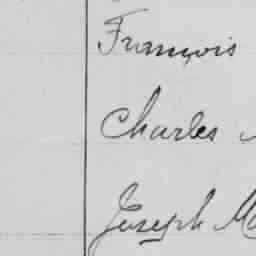 François
Charles
Joseph